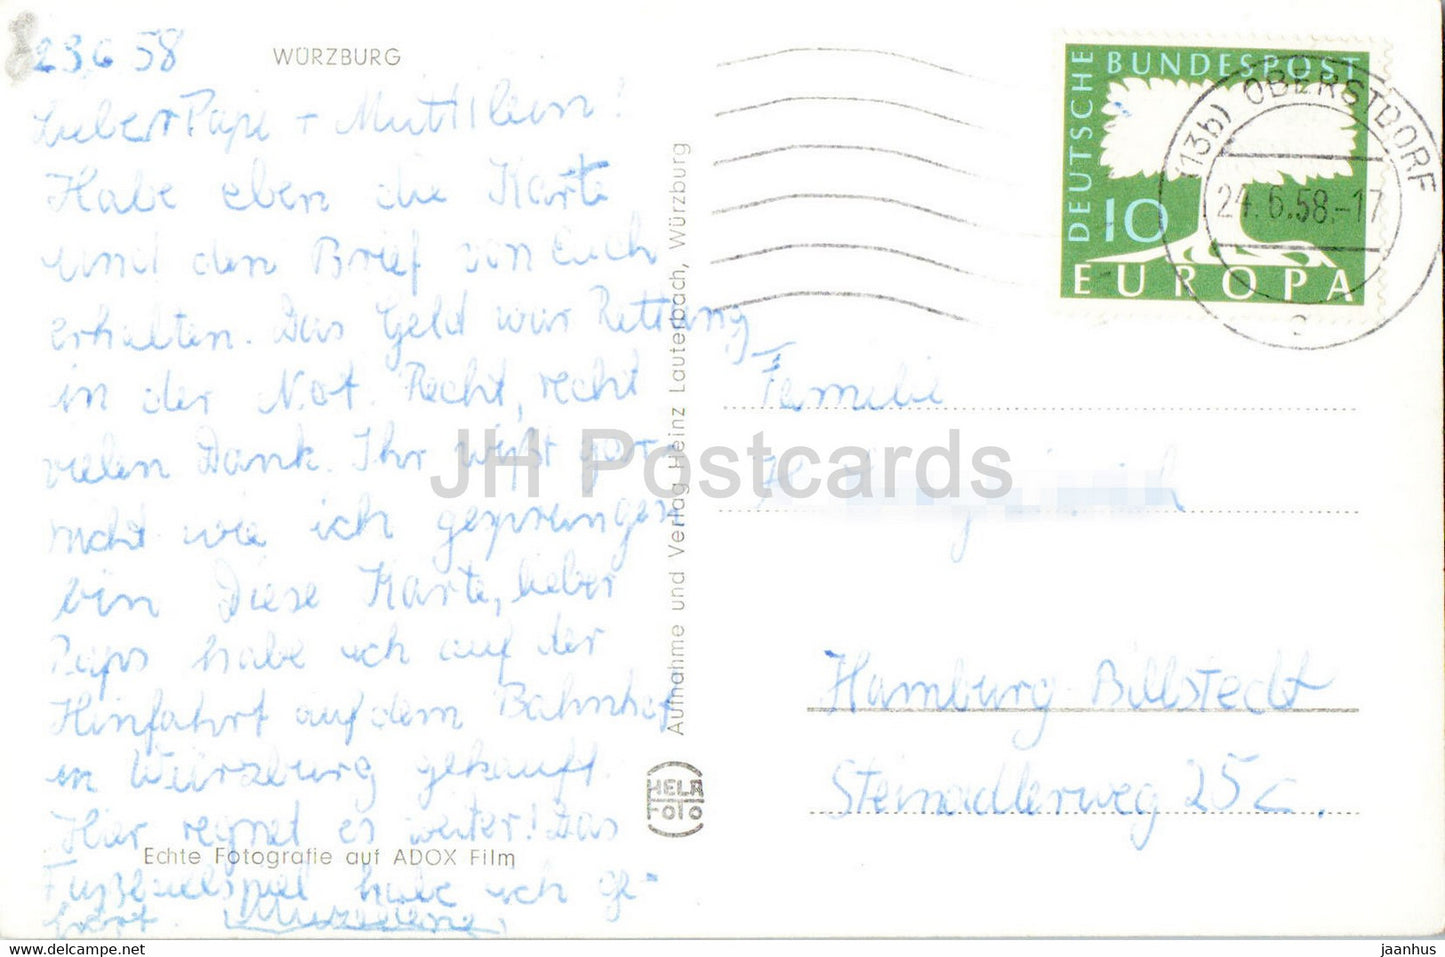 23.6.58
WÜRZBURG
Lieber Papi + Muttilein!
Habe eben die Karte
und den Brief von Euch
erhalten. Das Geld war Rettung
in der Not. Recht, recht
vielen Dank. Ihr wißt gar
nicht wie ich gesprungen
bin Diese Karte, lieber
Paps habe ich auf der
Hinfahrt auf dem Bahnhof
in Würzburg gekauft.
Hier regnet es weiter! Das
Fußballspiel habe ich ge-
hört.
Echte Fotografie auf ADOX Film
Aufnahme und Verlag Heinz Lauterbach, Würzburg
HELA
FOTO
DEUTSCHE BUNDESPOST
10
EUROPA
(13b) OBERSTDORF
24.6.58.-17
c
Familie
Hamburg-Billstedt
Steinadlerweg 25c.
JH Postcards
jaanhus